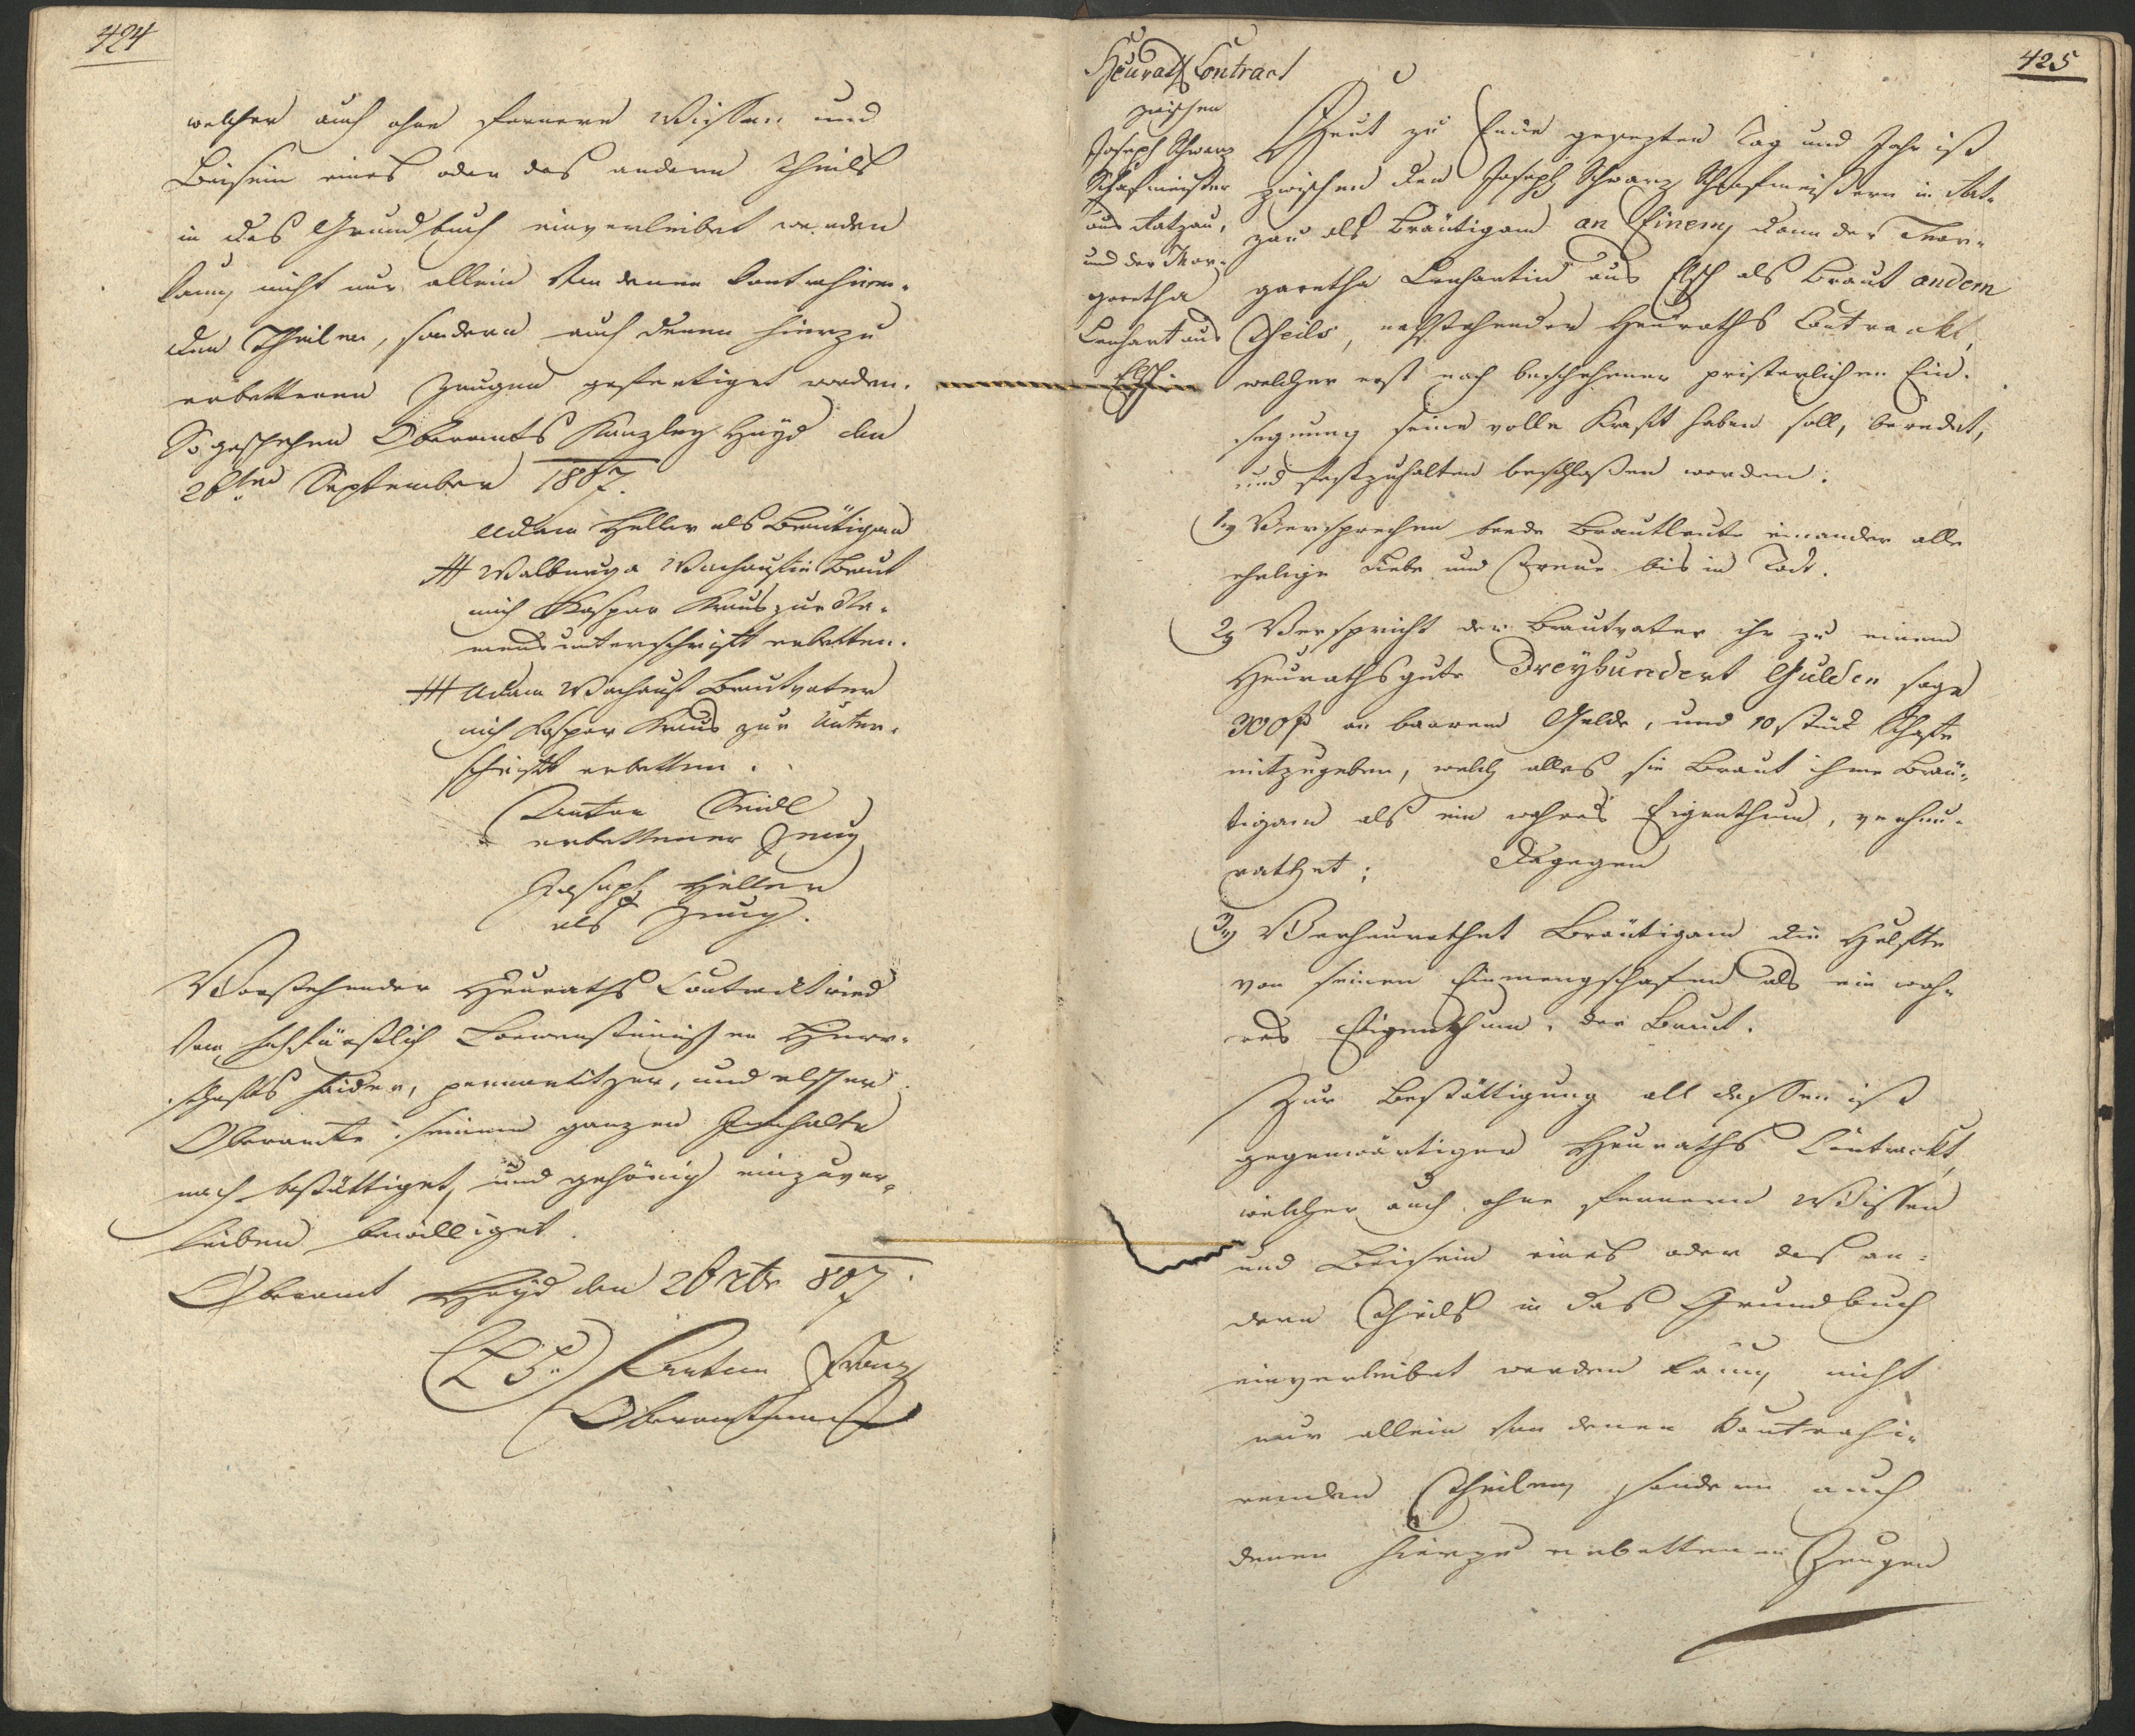 424
welcher auch ohne fernern Wissen und
Beisein eines oder des andern Theils
in das Grundbuch einverleibet werden
kann, nicht nur allein von denen Contrahiren-
den Theilen, sondern auch denen hierzu
erbettenen Zeugen gefertiget worden.
So geschehen Oberamts Kanzley Hayd den
26ten September 1807.
Adam Heller als Bräutigam
+++ Walburga Braut
mich Kaspar Kraus zur Na-
mensunterschrift erbetten.
+++ Adam Brautvater
mich Kaspar Kraus zur Unter-
schrift erbetten.
Anton Seidl
erbettener Zeug
Joseph Heller
als Zeug.
Vorstehender Heuraths Contract wird
von hochfürstlich Loewensteinischen Herr-
schafts haider, pernartitzer, und elscher
Oberamte seinem ganzen Innhalte
nach bestättiget, und gehörig einzuver-
leiben bewilliget.
Oberamt Hayd den 26 7br 807.
(L. S.) Franz
Oberamtmann
425
Heuraths Contract
zwischen
Joseph Schwarz
Schafmeister
aus Ratzau,
und der Mar-
garetha
Lenhart aus
Elsch
Heut zu Ende gesezten Tag und Jahr ist
zwischen den Joseph Schwarz Schafmeistern in Rat-
zau als Bräutigam an Einem, dann der Mar-
garetha Lenhartin aus Elsch als Braut andern
Theils, nachstehender Heuraths Contrackt,
welcher erst nach beschehener pristerlichen Ein-
segnung seine volle Kraft haben soll, beredet,
und festzuhalten beschloßen worden.
1.) Versprechen beede Brautleute einander alle
ehelige Liebe und Treue bis in Tod.
2.) Verspricht der Brautvater ihr zu einem
Heurathsgute Dreyhundert Gulden sage
300 f an baarem Gelde, und 10 stück Schafe
mitzugeben, welch alles sie Braut ihme Bräu-
tigam als ein wahres Eigenthum, verheu-
rathet; Dagegen
3.) Verheurathet Bräutigam die Helfte
von seinen Einmengschafen als ein wah-
res Eigenthum, der Braut.
Zur Bestättigung all dessen ist
gegenwärtiger Heuraths Contrackt,
welcher auch ohne fernern Wissen
und Beisein eines oder des an-
dern Theils in das Grundbuch
einverleibet werden kann, nicht
nur allein von denen Contrahi-
renden Theilen, sondern auch
denen hierzu erbettenen Zeugen